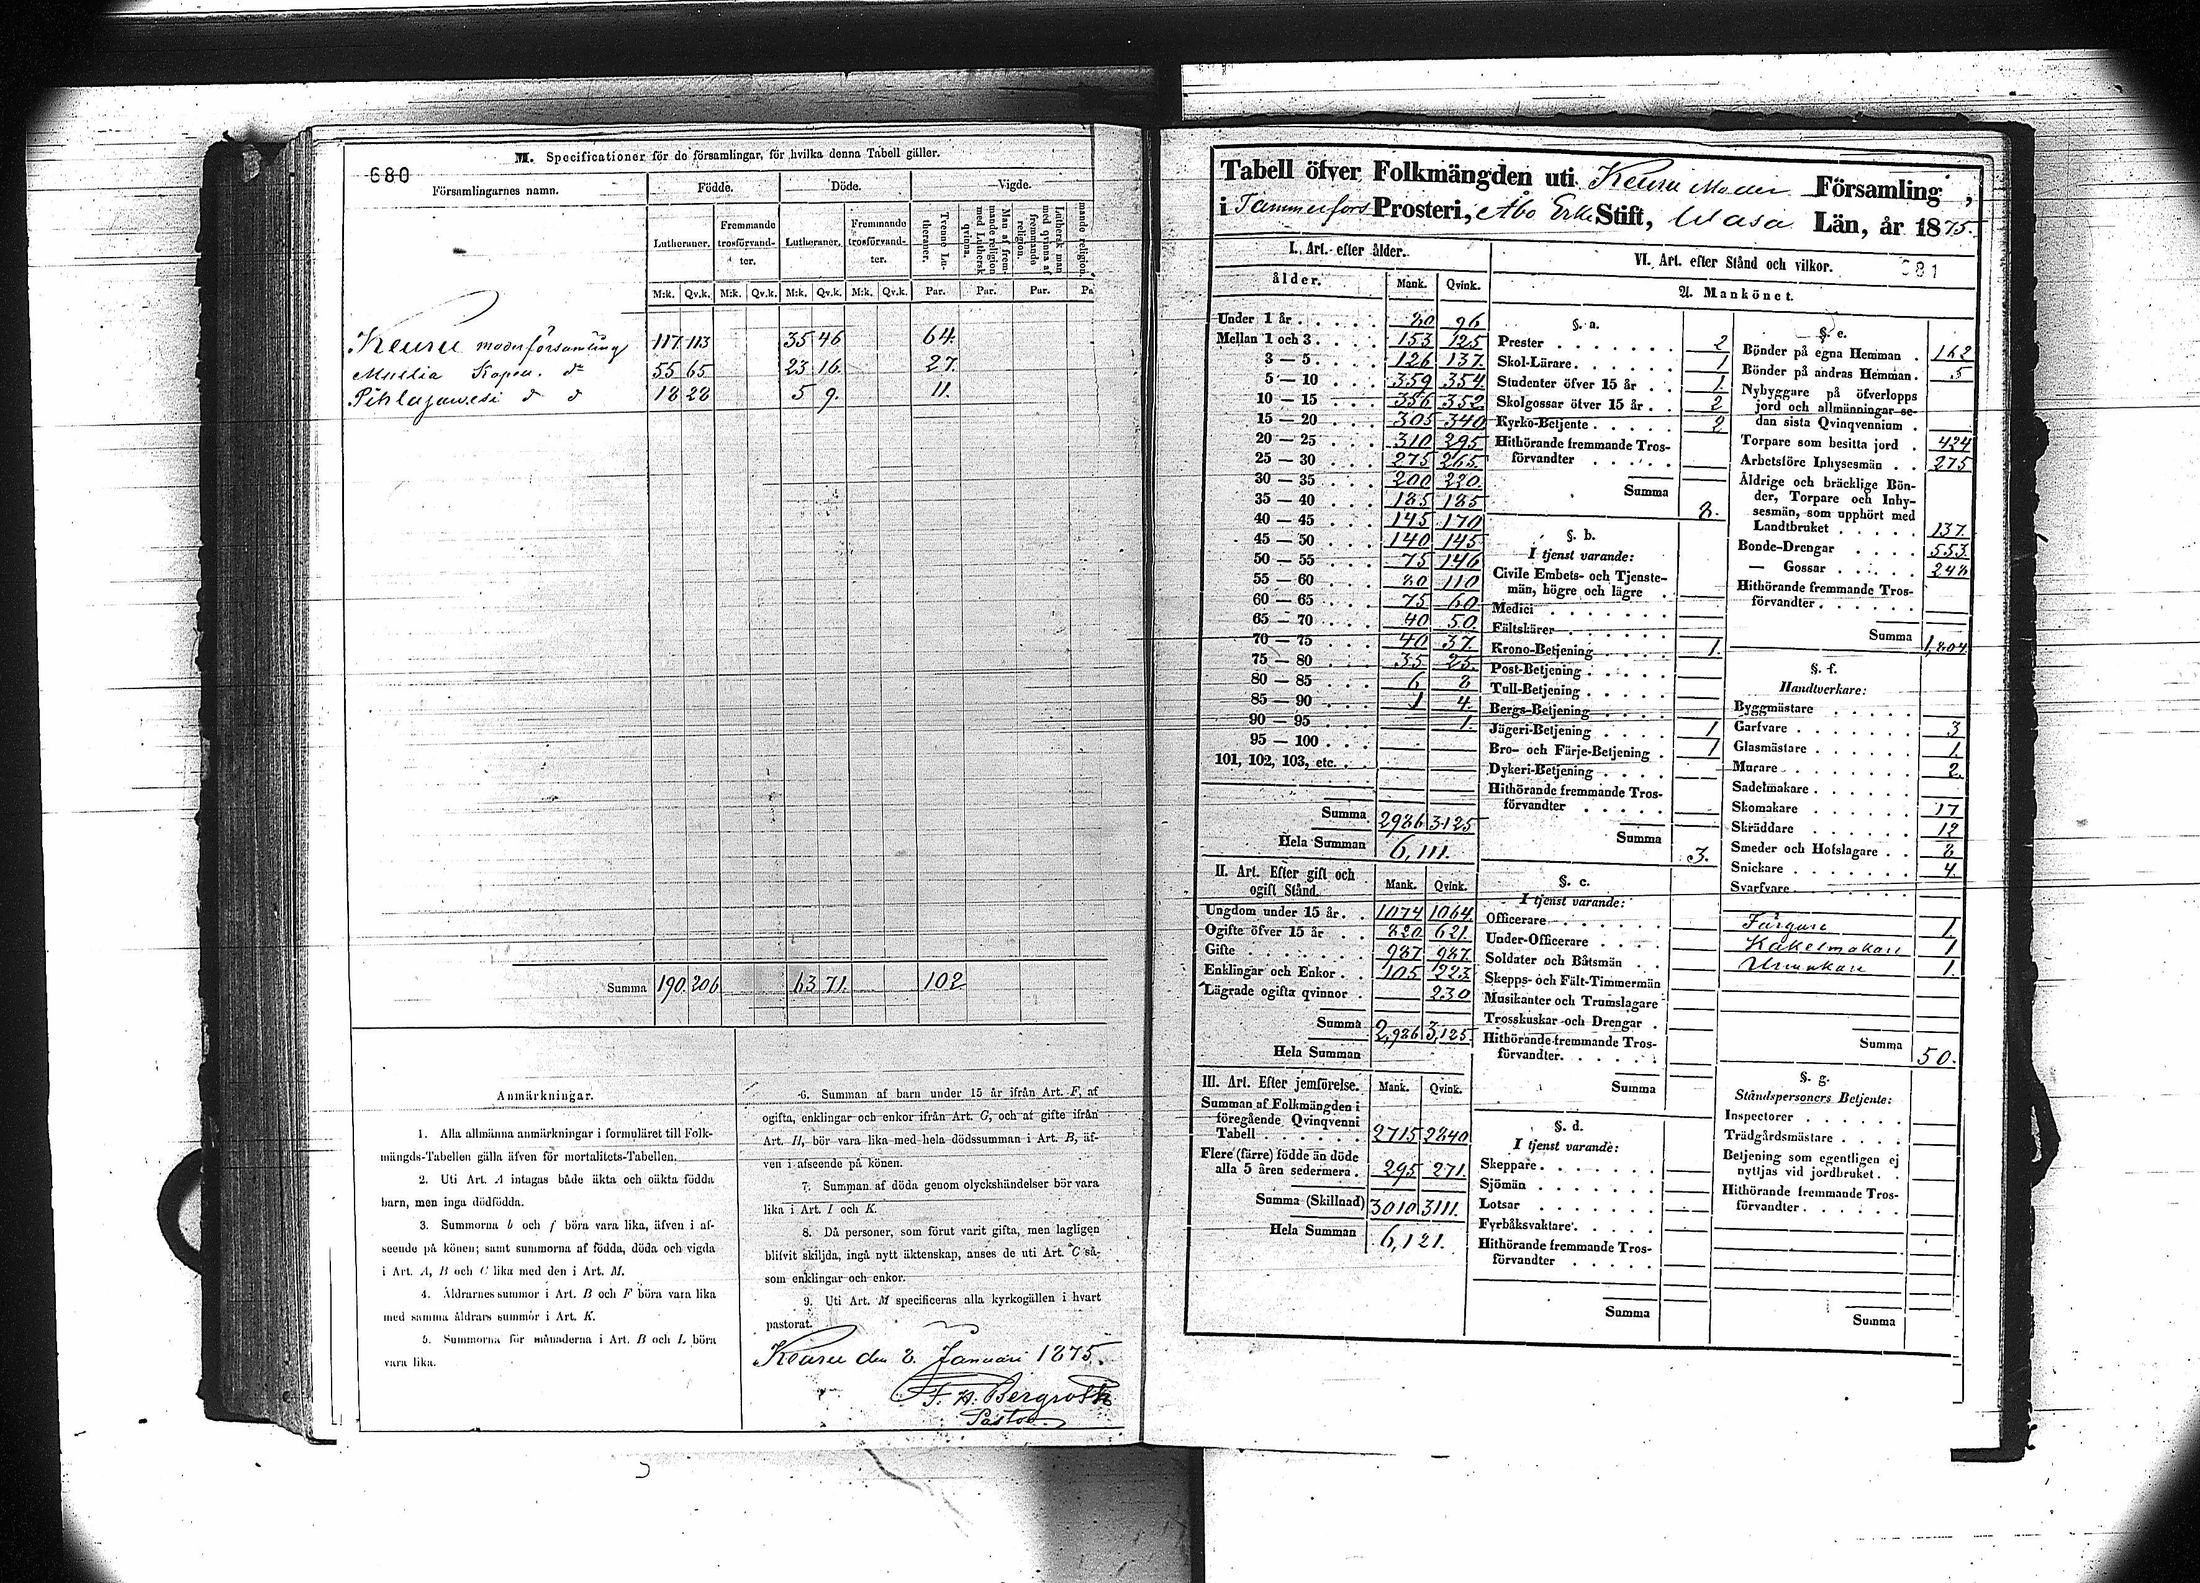 680
M. Specificationer för de församlingar, för hvilka denna Tabell gäller.
Församlingarnes namn. Födde. Döde. Vigde.
Lutheraner. Fremmande trosförvandter. Lutheraner. Fremmande trosförvandter. Tvenne Lutheraner. Man af fremmande religion med Luthersk qvinna. Luthersk man med qvinna af fremmande religion. mande religion.
M:k. Qv.k. M:k. Qv.k. M:k. Qv.k. M:k. Qv.k. Par. Par. Par. Pa
Keuru moderförsamling 117 113 35 46 64.
Multia Kapell. do 55 65 23 16. 27.
Pihlajavesi d d 18 28 5 9. 11.
Summa 190. 206 63 71. 102
Anmärkningar.
1. Alla allmänna anmärkningar i formuläret till Folk-
mängds-Tabellen gälla äfven för mortalitets-Tabellen.
2. Uti Art. A intagas både äkta och oäkta födda
barn, men inga dödfödda.
3. Summorna b och f böra vara lika, äfven i af-
seende på könen; samt summorna af födda, döda och vigda
i Art. A, B och C lika med den i Art. M.
4. Åldrarnes summor i Art. B och F böra vara lika
med samma åldrars summor i Art. K.
5. Summorna för månaderna i Art. B och L böra
vara lika.
6. Summan af barn under 15 år ifrån Art. F, af
ogifta, enklingar och enkor ifrån Art. G, och af gifte ifrån
Art. H, bör vara lika med hela dödssumman i Art. B, äf-
ven i afseende på könen.
7. Summan af döda genom olyckshändelser bör vara
lika i Art. I och K.
8. Då personer, som förut varit gifta, men lagligen
blifvit skiljda, ingå nytt äktenskap, anses de uti Art. C så-
som enklingar och enkor.
9. Uti Art. M specificeras alla kyrkogällen i hvart
pastorat.
Keuru den 8. Januari 1875.
F. W. Bergroth
Pastor
Tabell öfver Folkmängden uti Keuru Moder Församling,
i Tammerfors Prosteri, Åbo Erke Stift, Wasa Län, år 1875.
I. Art. efter ålder.
ålder. Mank. Qvink.
Under 1 år 80 96
Mellan 1 och 3 153 125
3 — 5 126 137.
5 — 10 359 354
10 — 15 356 352
15 — 20 305 340
20 — 25 310 295
25 — 30 275 265.
30 — 35 200 220.
35 — 40 185 185
40 — 45 145 170
45 — 50 140 145
50 — 55 75 146
55 — 60 80 110
60 — 65 75 60
65 — 70 40 50.
70 — 75 40 37.
75 — 80 35 25.
80 — 85 6 8
85 — 90 1 4.
90 — 95 1.
95 — 100
101, 102, 103, etc.
Summa 2986 3125
Hela Summan 6,111.
II. Art. Efter gift och ogift Stånd. Mank. Qvink.
Ungdom under 15 år 1074 1064
Ogifte öfver 15 år 820 621.
Gifte 987 987.
Enklingar och Enkor 105 223.
Lägrade ogifta qvinnor 230
Summa 2,986 3,125.
Hela Summan
III. Art. Efter jemförelse. Mank. Qvink.
Summan af Folkmängden i
föregående Qvinqvenni
Tabell 2715 2840
Flere (färre) födde än döde
alla 5 åren sedermera 295 271.
Summa (Skillnad) 3010 3111.
Hela Summan 6,121.
VI. Art. efter Stånd och vilkor. 681
A. Mankönet.
§. a.
Prester 2
Skol-Lärare 1
Studenter öfver 15 år 1.
Skolgossar öfver 15 år 2
Kyrko-Betjente 2
Hithörande fremmande Tros-
förvandter
Summa 8.
§. b.
I tjenst varande:
Civile Embets- och Tjenste-
män, högre och lägre
Medici
Fältskärer
Krono-Betjening 1.
Post-Betjening
Tull-Betjening
Bergs-Betjening
Jägeri-Betjening 1
Bro- och Färje-Betjening 1
Dykeri-Betjening
Hithörande fremmande Tros-
förvandter
Summa 3.
§. c.
I tjenst varande:
Officerare
Under-Officerare
Soldater och Båtsmän
Skepps- och Fält-Timmermän
Musikanter och Trumslagare
Trosskuskar och Drengar
Hithörande fremmande Tros-
förvandter
Summa
§. d.
I tjenst varande:
Skeppare
Sjömän
Lotsar
Fyrbåksvaktare
Hithörande fremmande Tros-
förvandter
Summa
§. e.
Bönder på egna Hemman 162
Bönder på andras Hemman 5
Nybyggare på öfverlopps
jord och allmänningar se-
dan sista Qvinqvennium
Torpare som besitta jord 424
Arbetsföre Inhysesmän 275
Åldrige och bräcklige Bön-
der, Torpare och Inhy-
sesmän, som upphört med
Landtbruket 137.
Bonde-Drengar 553.
— Gossar 248
Hithörande fremmande Tros-
förvandter
Summa 1,804
§. f.
Handtverkare:
Byggmästare
Garfvare 3
Glasmästare 1.
Murare 2.
Sadelmakare
Skomakare 17
Skräddare 12
Smeder och Hofslagare 8
Snickare 4.
Svarfvare
Färgare 1.
Kakelmakare 1
Urmakare 1.
Summa 50.
§. g.
Ståndspersoners Betjente:
Inspectorer
Trädgårdsmästare
Betjening som egentligen ej
nyttjas vid jordbruket
Hithörande fremmande Tros-
förvandter
Summa